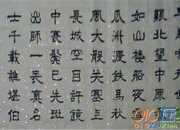 艱中原北望氣
如山樓船夜雪
瓜洲渡鐵馬秋
風大散關塞上
長城空自許鏡
中衰鬢已先斑
出師一表真名
士千載誰堪伯